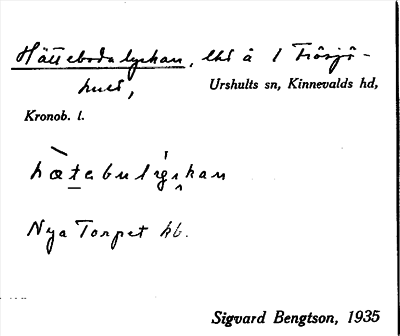 Hätteboda lyckan, lhd å 1 Trösjö-
hult,
Urshults sn, Kinnevalds hd,
Kronob. l.
hætabulyckan
Nya Torpet hb.
Sigvard Bengtson, 1935